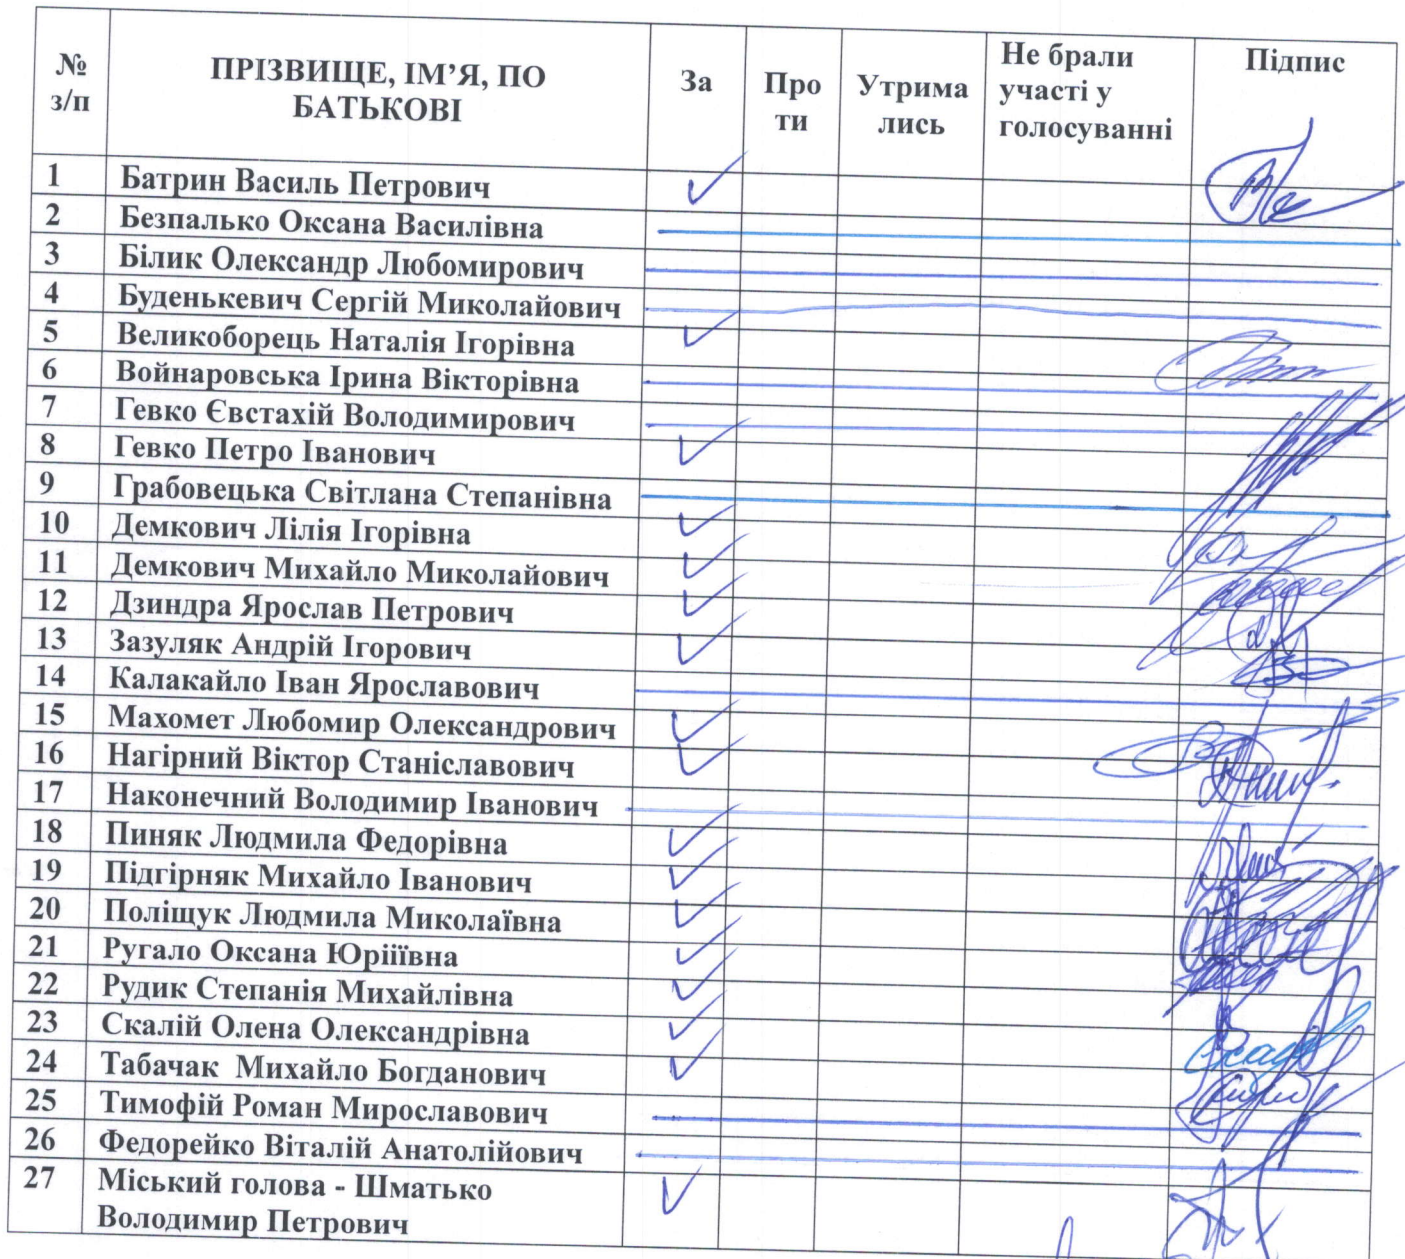 № з/п ПРІЗВИЩЕ, ІМ’Я, ПО БАТЬКОВІ За Про ти Утрима лись Не брали участі у голосуванні Підпис
1 Батрин Василь Петрович ✓
2 Безпалько Оксана Василівна
3 Білик Олександр Любомирович
4 Буденькевич Сергій Миколайович
5 Великоборець Наталія Ігорівна ✓
6 Войнаровська Ірина Вікторівна
7 Гевко Євстахій Володимирович
8 Гевко Петро Іванович ✓
9 Грабовецька Світлана Степанівна
10 Демкович Лілія Ігорівна ✓
11 Демкович Михайло Миколайович ✓
12 Дзиндра Ярослав Петрович ✓
13 Зазуляк Андрій Ігорович ✓
14 Калакайло Іван Ярославович
15 Махомет Любомир Олександрович ✓
16 Нагірний Віктор Станіславович ✓
17 Наконечний Володимир Іванович
18 Пиняк Людмила Федорівна ✓
19 Підгірняк Михайло Іванович ✓
20 Поліщук Людмила Миколаївна ✓
21 Ругало Оксана Юріїївна ✓
22 Рудик Степанія Михайлівна ✓
23 Скалій Олена Олександрівна ✓
24 Табачак Михайло Богданович ✓
25 Тимофій Роман Мирославович
26 Федорейко Віталій Анатолійович
27 Міський голова - Шматько ✓
Володимир Петрович